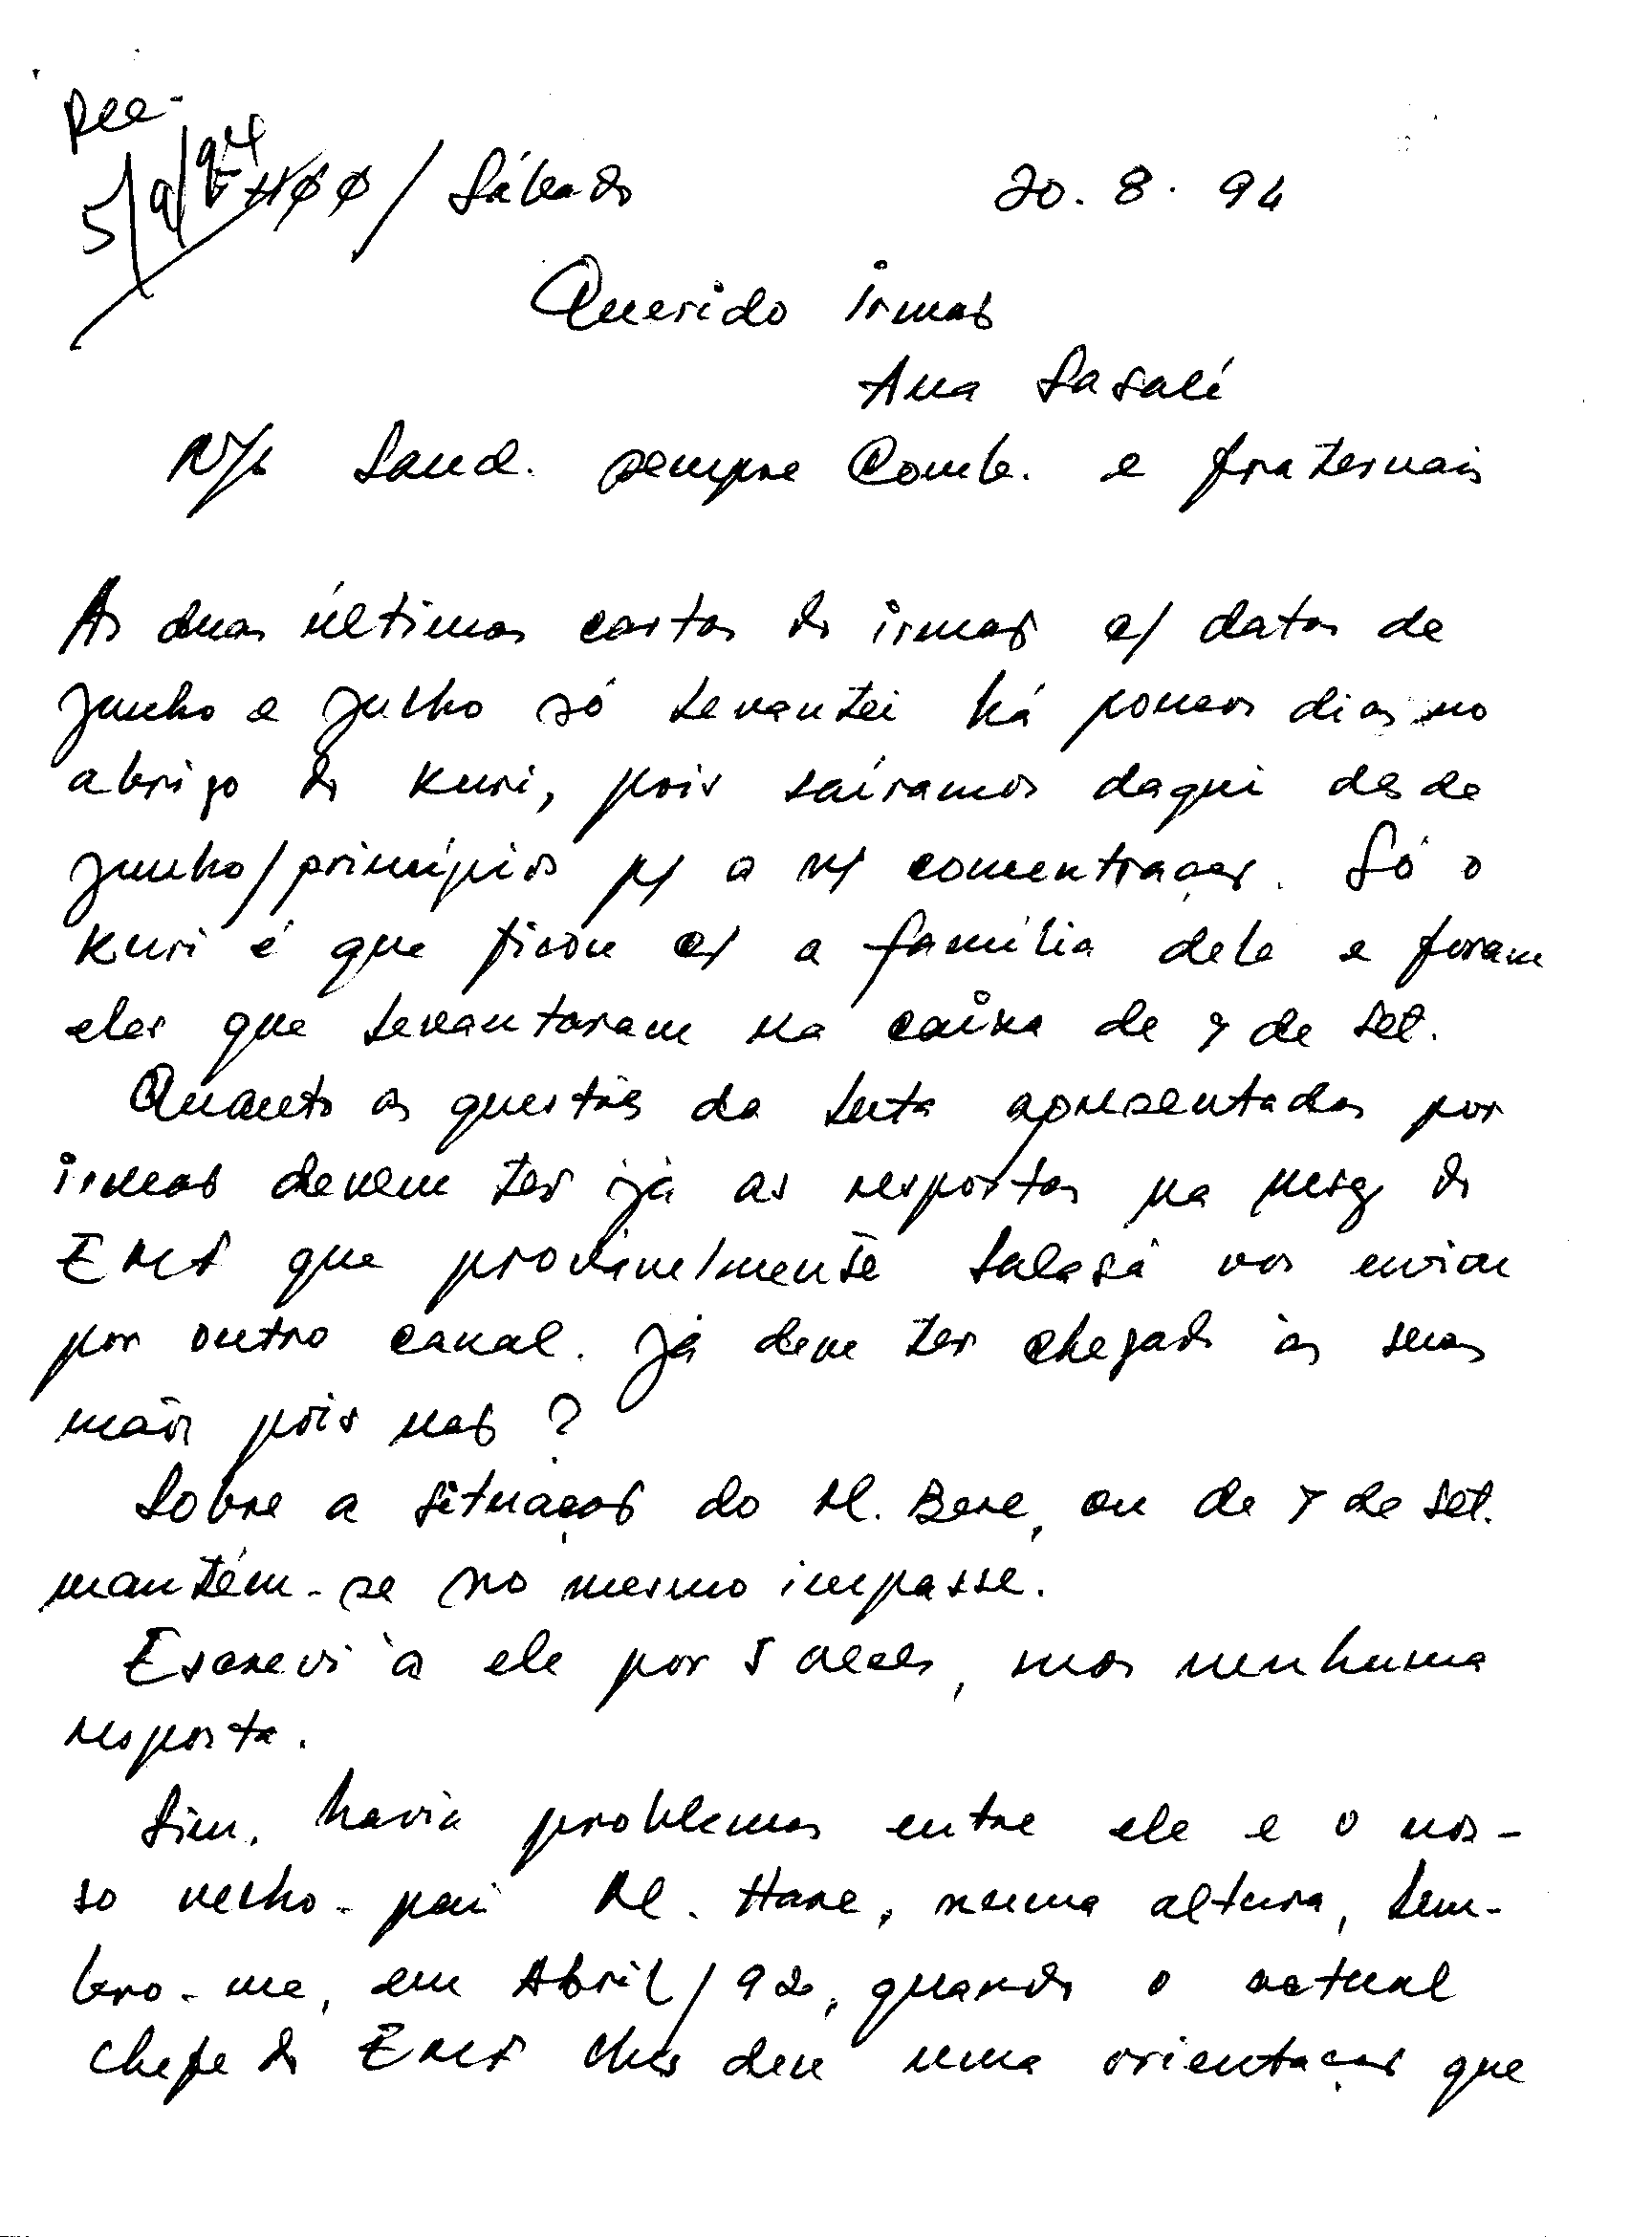 Rec-
5/9/94
/ Sábado 20. 8. 94
Querido irmão
Ana Sasalé
N/s Saud. sempre Comb. e fraternais
As duas últimas cartas do irmão c/ datas de
junho e julho só levantei há poucos dias no
abrigo do Kuri, pois saíramos daqui desde
junho/princípios p/ a n/ concentração. Só o
Kuri é que ficou c/ a família dele e foram
eles que levantaram na caixa de 7 de Set.
Quanto as questões da luta apresentadas por
irmão devem ter já as respostas na msg do
EMF que provavelmente Salasá vos enviou
por outro canal. Já deve ter chegado às suas
mãos pois não?
Sobre a situação do M. Bere, ou de 7 de Set.
mantém-se no mesmo impasse.
Escrevi à ele por 5 vezes, mas nenhuma
resposta.
Sim, havia problemas entre ele e o nos-
so velho-pai M. Hare, numa altura, lem-
bro-me, em Abril/92, quando o actual
chefe do EMF lhes deu uma orientação que